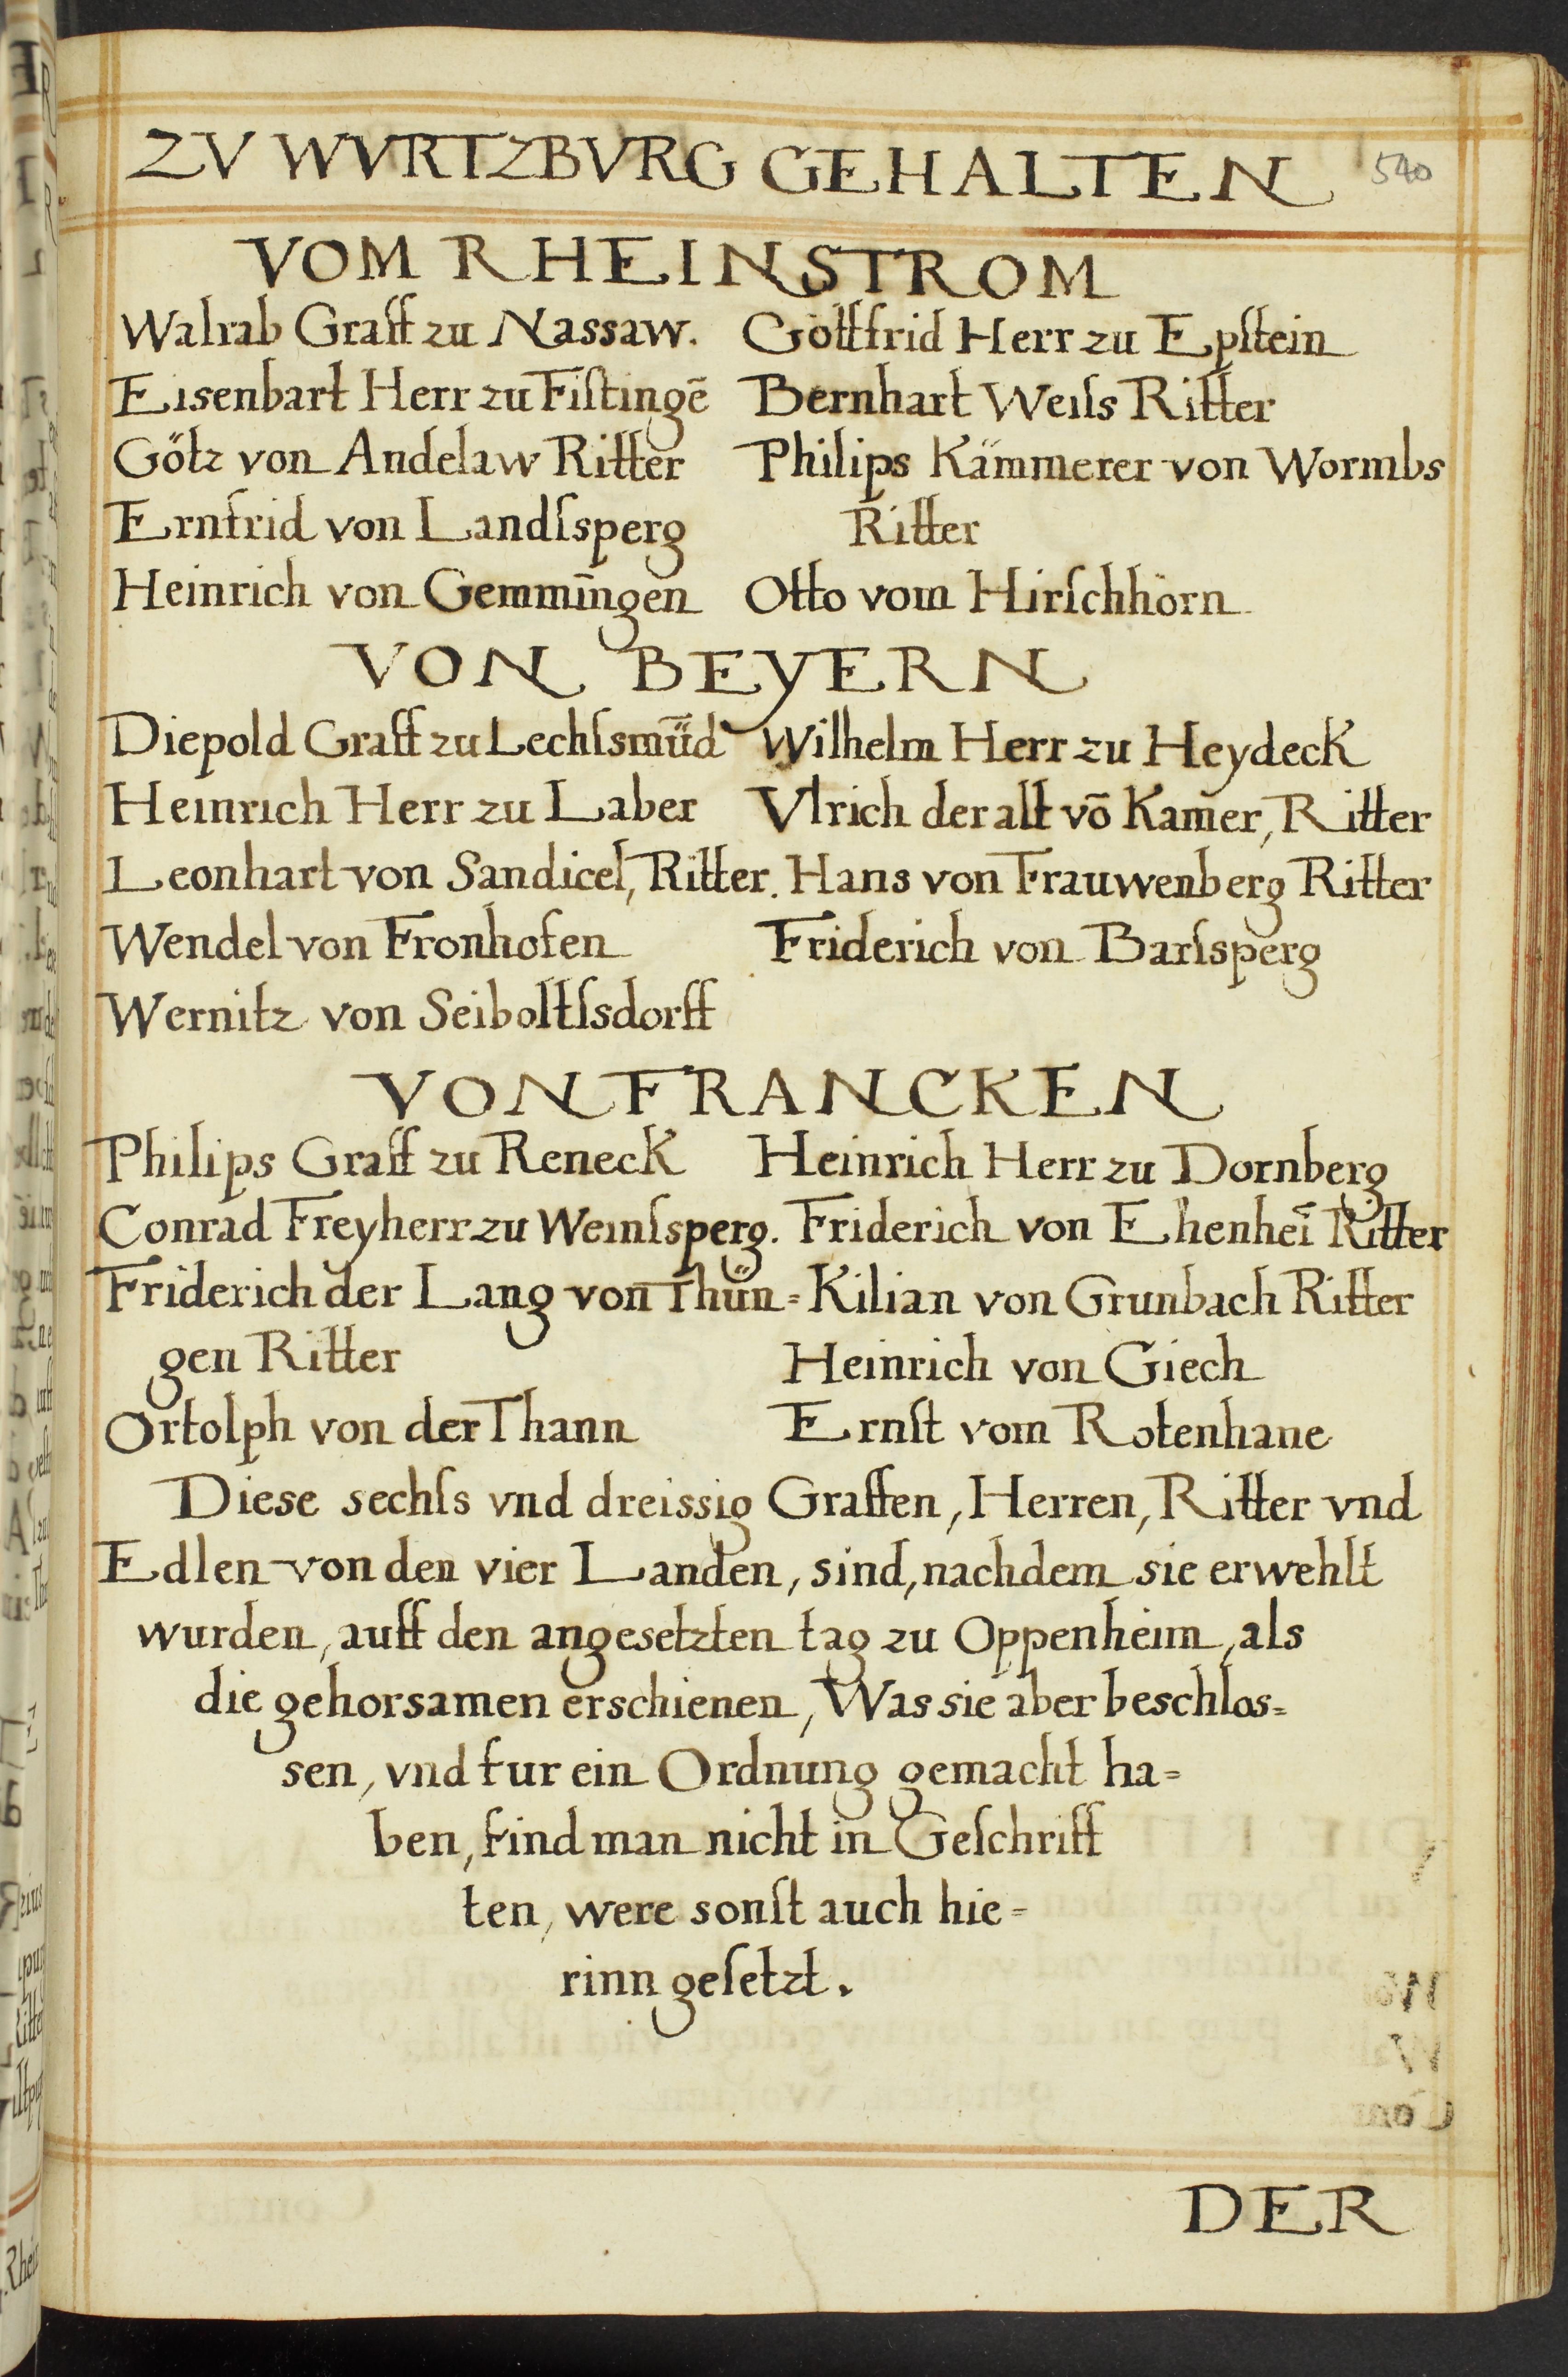 ZV WVRTZBVRG GEHALTEN 540
VOM RHEINSTROM
Walrab Graff zu Nassaw. Gottfrid Herr zu Epſtein
Eisenbart Herr zu Fiſtingē Bernhart Weiſs Ritter
Götz von Andelaw Ritter Philips Kämmerer von Wormbs
Ernfrid von Landſsperg Ritter
Heinrich von Gemmīngen Otto vom Hirſchhorn
VON BEYERN
Diepold Graff zu Lechſsmūd Wilhelm Herr zu Heydeck
Heinrich Herr zu Laber Vlrich der alt vō Kam̄er, Ritter
Leonhart von Sandicel, Ritter. Hans von Frauwenberg Ritter
Wendel von Fronhofen Friderich von Barſsperg
Wernitz von Seiboltſsdorff
VON FRANCKEN
Philips Graff zu Reneck Heinrich Herr zu Dornberg
Conrad Freyherr zu Weinſsperg. Friderich von Ehenheī Ritter
Friderich der Lang von Thün= Kilian von Grunbach Ritter
gen Ritter Heinrich von Giech
Ortolph von der Thann Ernſt vom Rotenhane
Diese sechſs vnd dreissig Graffen, Herren, Ritter vnd
Edlen von den vier Landen, sind, nachdem sie erwehlt
wurden, auff den angesetzten tag zu Oppenheim, als
die gehorsamen erschienen, Was sie aber beschlos=
sen, vnd fur ein Ordnung gemacht ha=
ben, find man nicht in Geſchriff
ten, were sonſt auch hie=
rinn geſetzt.
DER